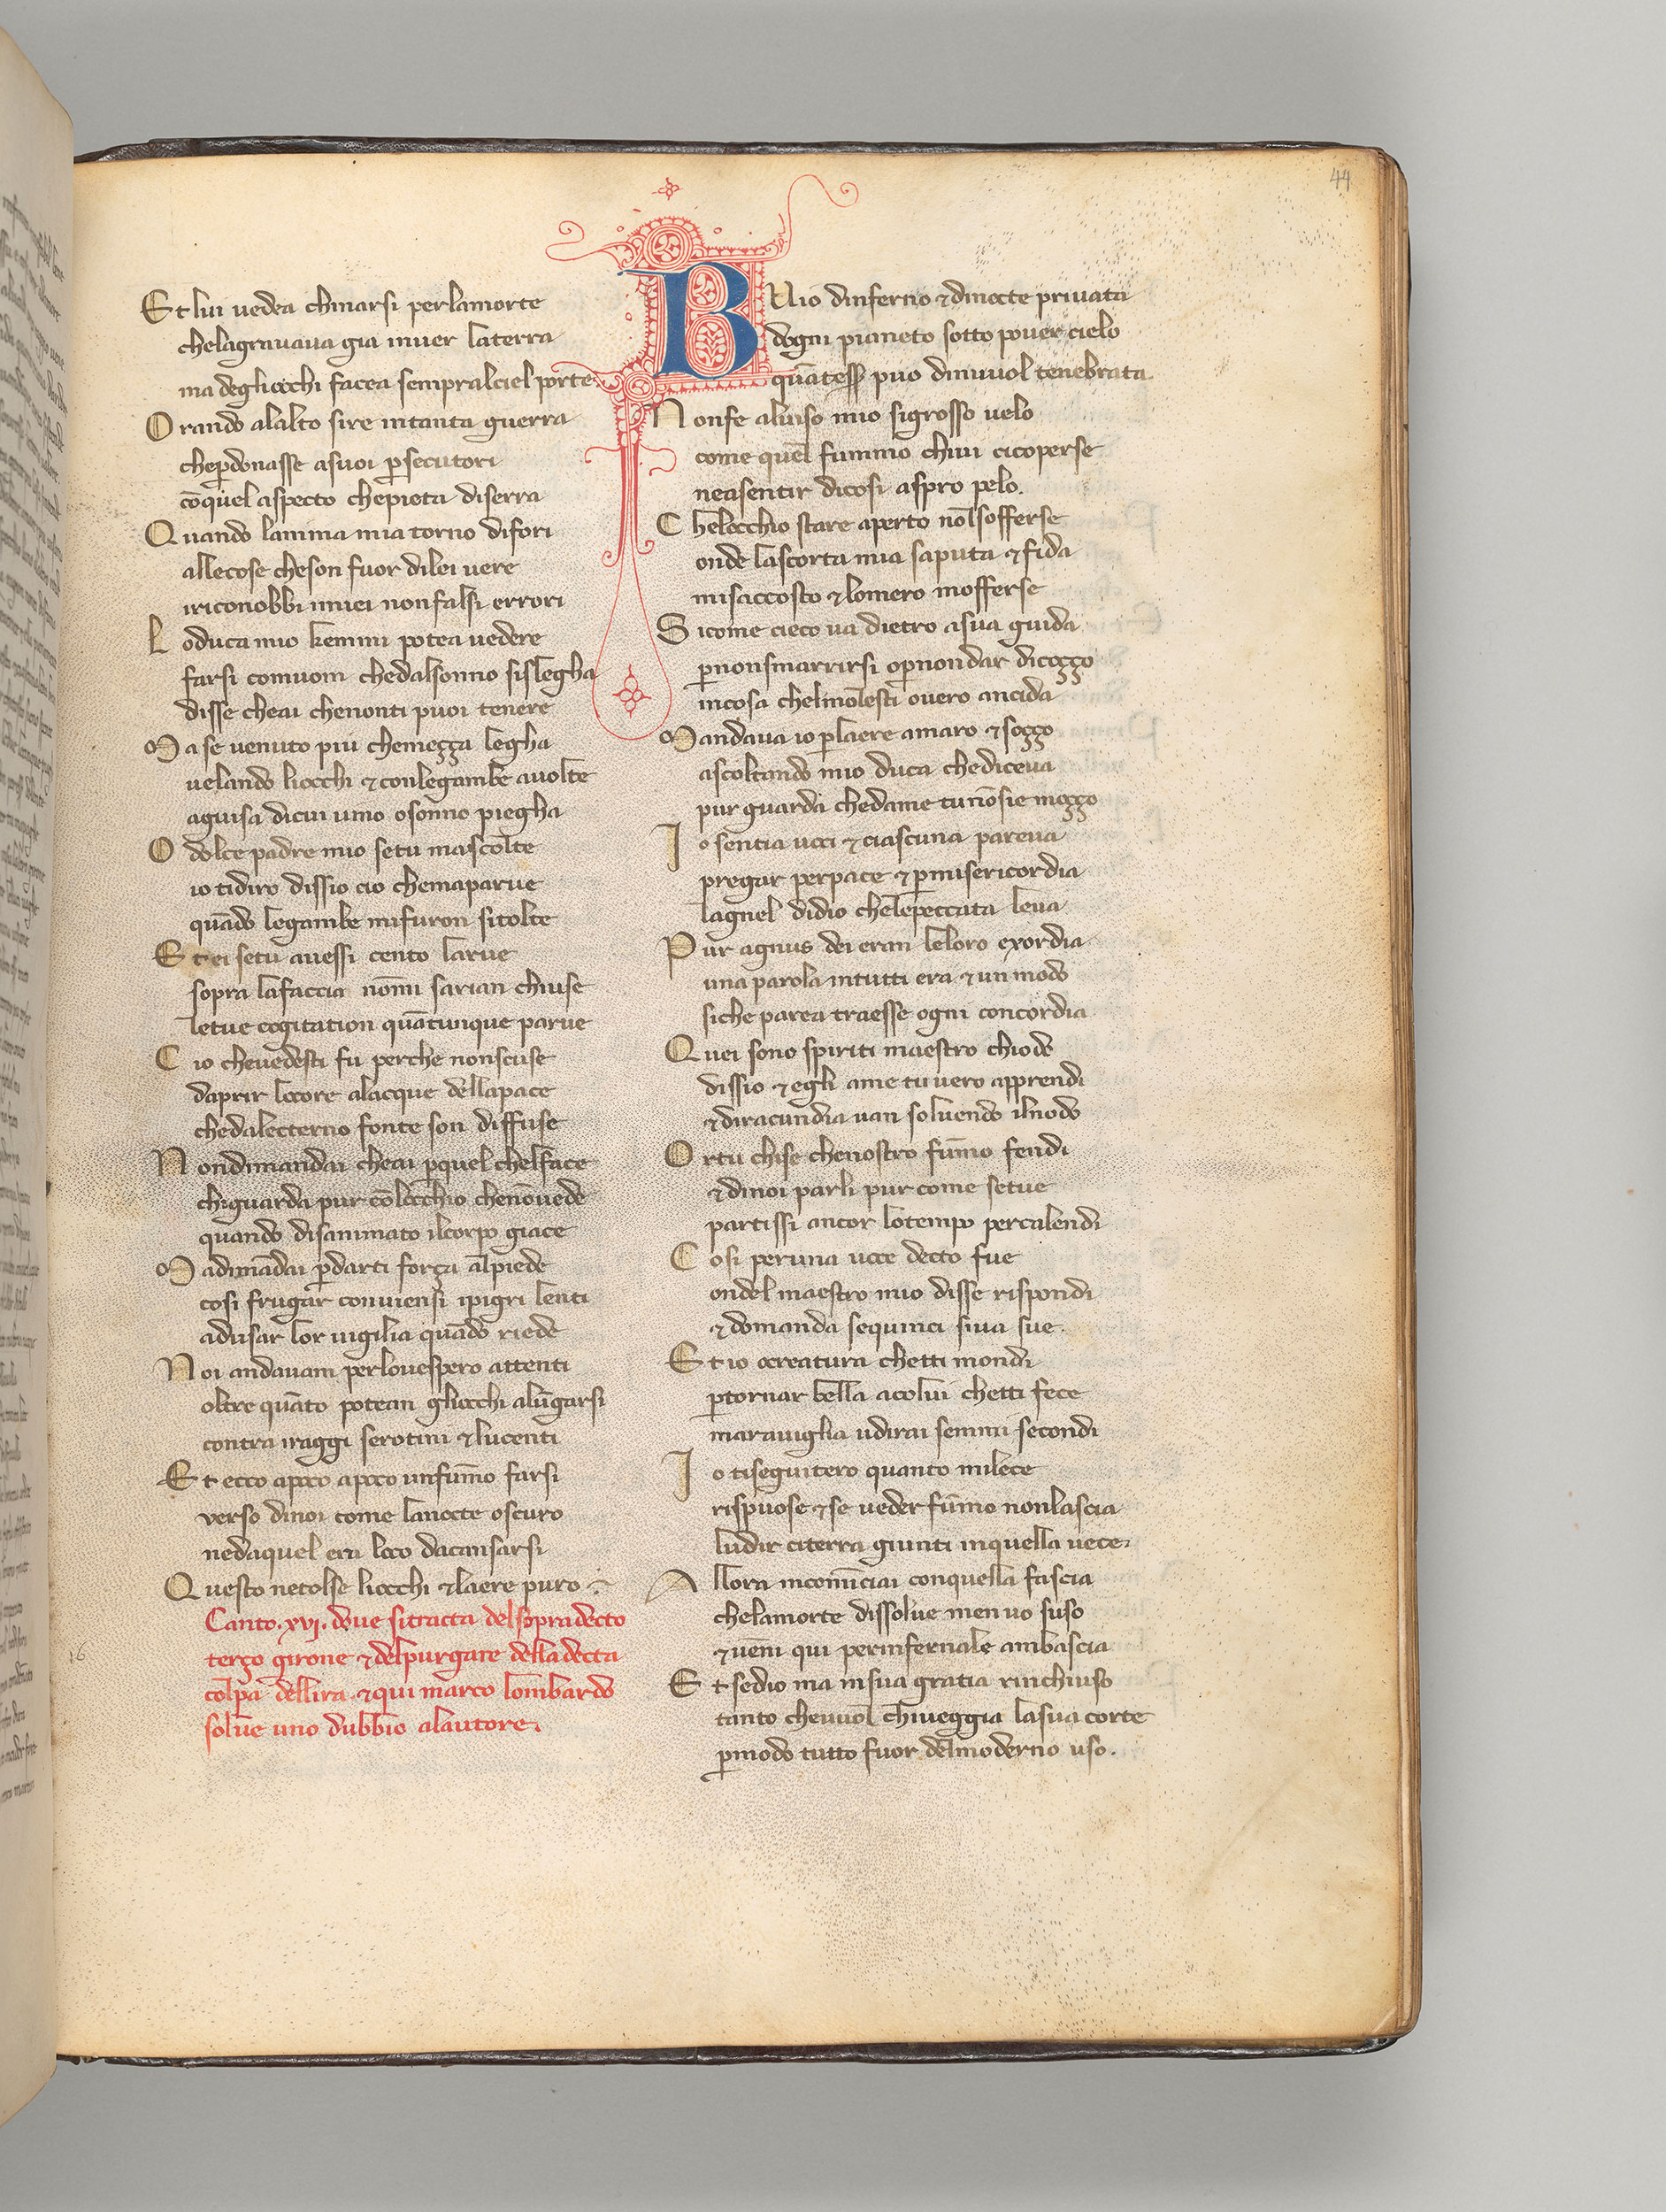 44
Et lui vedea chinarsi perlamorte
chelagravava gia inver laterra
ma degliocchi facea sempralciel porte
Orando alalto sire intanta guerra
chep̄donasse asuoi p̄secutori
cōquel aspecto chepieta diserra
Quando lanima mia torno difori
allecose cheson fuor dilei vere
iriconobbi imiei nonfalsi errori
Loduca mio kemmi potea vedere
farsi comuom chedalsonno sislegha
disse cheai chenonti puoi tenere
Ma se venuto piu chemeçça legha
velando liocchi ⁊ conlegambe avolte
aguisa dicui vino osonno piegha
O dolce padre mio setu mascolte
io tidiro dissio cio chemaparve
quādo legambe mifuron sitolte
Et ei setu avessi cento larve
sopra lafaccia nonmi sarian chiuse
letue cogitation quātunque parve
Cio chevedesti fu perche nonscuse
daprir locore alacque dellapace
chedaletterno fonte son diffuse
Nondimandai cheai p̄quel chelface
chiguarda pur cōlocchio chenōvede
quando disanimato ilcorpo giace
Madimādai p̄darti força alpiede
cosi frugar conviensi ipigri lenti
adusar lor vigilia quādo riede
Noi andavam perlovespero attenti
oltre quāto potean gliocchi alūgarsi
contra iraggi serotini ⁊ lucenti
Et ecco apoco apoco unfūmo farsi
verso dinoi come lanocte oscuro
nedaquel era loco dacansarsi
Questo netolse liocchi ⁊ laere puro
Canto .xvj. dove sitracta delsopradecto
terço girone ⁊ delpurgare delladecta
colpa dellira. ⁊ qui marco lombardo
solve uno dubbio alautore.
16
BUio dinferno ⁊ dinocte privata
dogni pianeto sotto pover cielo
quātess puo dinuvol tenebrata
Nonfe alviso mio sigrosso velo
come quel fummo chivi cicoperse
neasentir dicosi aspro pelo.
Chelocchio stare aperto nōlsofferse
onde lascorta mia saputa ⁊ fida
misaccosto ⁊ lomero mofferse
Sicome cieco va dietro asua guida
p̄nonsmarrirsi op̄nondar dicoçço
incosa chelmolesti overo ancida
Mandava io p̄laere amaro ⁊ soçço
ascoltando mio duca chediceva
pur guarda chedame tu nōsie moçço
Io sentia voci ⁊ ciascuna pareva
pregar perpace ⁊ p̄misericordia
lagnel didio chelepeccata leva
Pur agnus dei eran leloro exordia
una parola intutti era ⁊ un modo
siche parea traesse ogni concordia
Quei sono spiriti maestro chiodo
dissio ⁊ egli ame tu vero apprendi
⁊ diracundia van solvendo ilnodo
Ortu chise chenostro fūmo fendi
⁊ dinoi parli pur come setue
partissi ancor lotempo percalendi
Cosi peruna voce decto fue
ondel maestro mio disse rispondi
⁊ domanda sequinci siva sue.
Et io ocreatura chetti mondi
p̄tornar bella acolui chetti fece
maraviglia udirai semmi secondi
Io tiseguitero quanto milece
rispuose ⁊ se veder fūmo nonlascia
ludir citerra giunti inquella vece.
Allora incominciai conquella fascia
chelamorte dissolve men vo suso
⁊ vēni qui perinfernale ambascia
Et sedio ma insua gratia rinchiuso
tanto chevuol chiveggia lasua corte
p̄modo tutto fuor delmoderno uso.